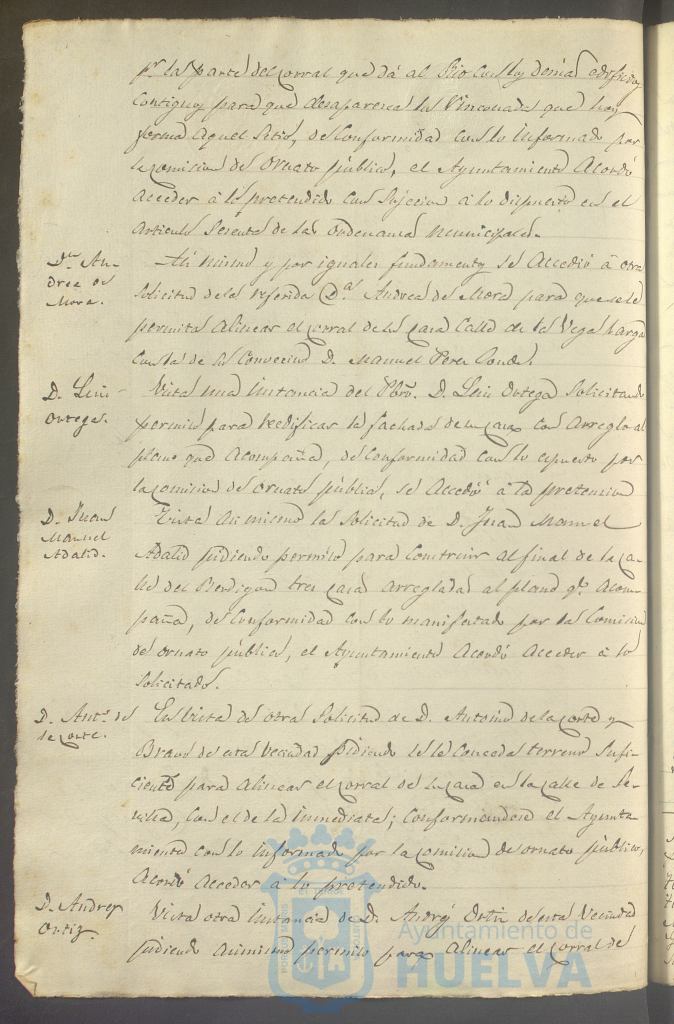 pr. la parte del corral que dá al Rio con los demas edificios
contiguos para que desaparesca la Rinconada que hoy
forma aquel Sitio, de conformidad con lo informado por
la comision de ornato público, el Ayuntamiento acordó
acceder á lo pretendido con sujecion á lo dispuesto en el
articulo sesenta de las ordenanzas municipales.
Da. An-
drea de
Mora.
Asi mismo y por iguales fundamentos se accedió á otra
solicitud de la referida Da. Andrea de Mora para que se le
permita alinear el corral de su casa calle de la Vega larga
con la de su convecino D. Manuel Perez Conde.
D. Luis
Ortega.
Vista una instancia del Pbro. D. Luis Ortega solicitando
permiso para reedificar la fachada de su casa con arreglo al
plano que acompaña, de conformidad con lo espuesto por
la comision de ornato público, se accedió á la pretencion
D. Juan
Manuel
Adalid.
Vista asi mismo la solicitud de D. Juan Manuel
Adalid pidiendo permiso para construir al final de la ca-
lle del tres casas arregladas al plano qe. acom-
paña, de conformidad con lo manifestado por la Comision
de ornato público, el Ayuntamiento acordó acceder á lo
solicitado.
D. Anto. de
la Corte.
En vista de otra solicitud de D. Antonio de la Corte y
Bravo de esta vecindad pidiendo se le conceda terreno sufi-
ciente para alinear el corral de su casa en la calle de Se-
villa, con el de la inmediata; conformandose el Ayunta-
miento con lo informado por la comision de ornato público,
acordó acceder á lo pretendido.
D. Andres
Ortiz.
Vista otra instancia de D. Andrés Ortiz de esta vecindad
pidiendo asimismo permiso para alinear el corral de
Ayuntamiento de
HUELVA